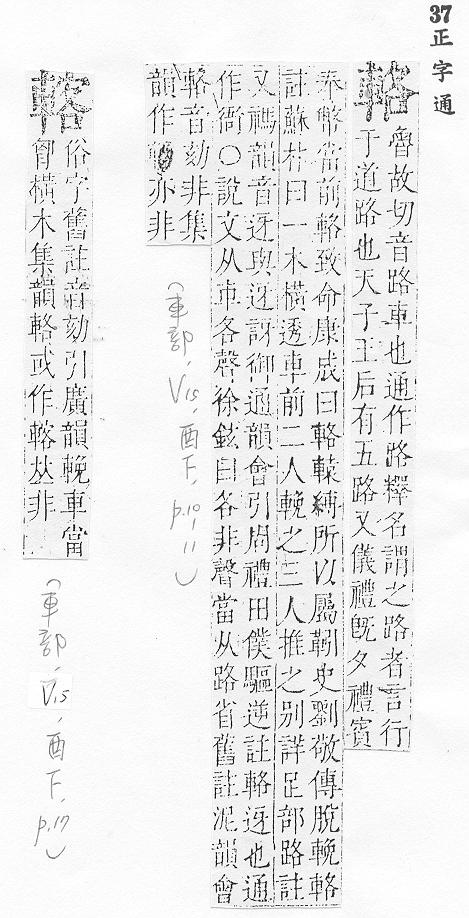 37正字通
輅
魯故切音路車也通作路釋名謂之路者言行
于道路也天子王后有五路又儀禮旣夕禮賓
奉幣當前輅致命康成曰輅轅縛所以屬靷史劉敬傳脫輓輅
註蘇林曰一木橫遮車前二人輓之三人推之別詳足部路註
又禡韻音迓與迓訝御通韻會引周禮田僕驅逆註輅迓也通
作御○說文从車各聲徐鉉曰各非聲當从路省舊註泥韻會
輅音劾非集
韻作 亦非
(車部, V15, 酉下, p.10-11)
俗字舊註音劾引廣韻輓車當
胷橫木集韻輅或作 𠀤非
(車部, V15, 酉下, p.17)